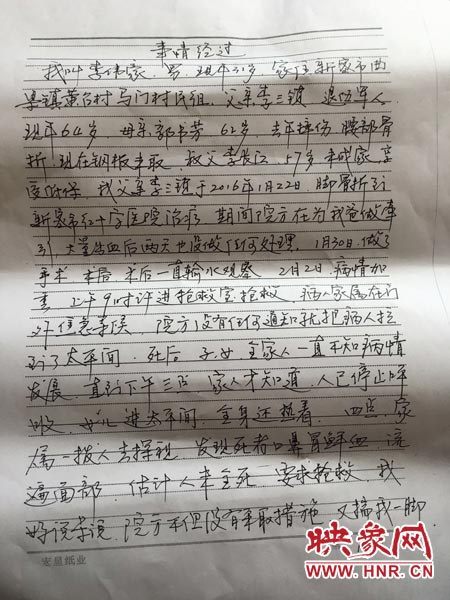 事情经过
我叫李伟家，男，现年31岁，家住新密市曲
梁镇黄台村马门村民组，父亲李三镇，退伍军人
现年64岁，母亲郭书芳62岁，去年摔伤腰部骨
折，现在钢板未取，叔父李长江57岁未成家，享
受低保，我父亲李三镇于2016年1月22日，脚骨折到
新密市红十字医院治疗，期间院方在为我爸做牵
引，大量出血后两天也没做任何处理，1月30日做了
手术，术后 术后一直输水观察，2月2日，病情加
重，上午9时许进抢救室抢救，病人家属在门
外任意等候，院方没有任何通知就把病人拉
到了太平间，死后，子女全家人一直不知病情
发展，直到下午三点，家人才知道，人已停止呼
吸，女儿进太平间，全身还热着，四点，家
属一拨人去探视，发现死者口鼻冒鲜血，流
遍面部，估计人未全死，要求抢救，我
好说歹说，院方不但没有采取措施，又揣我一脚，
宏显纸业
映象网
WWW.HNR.CN